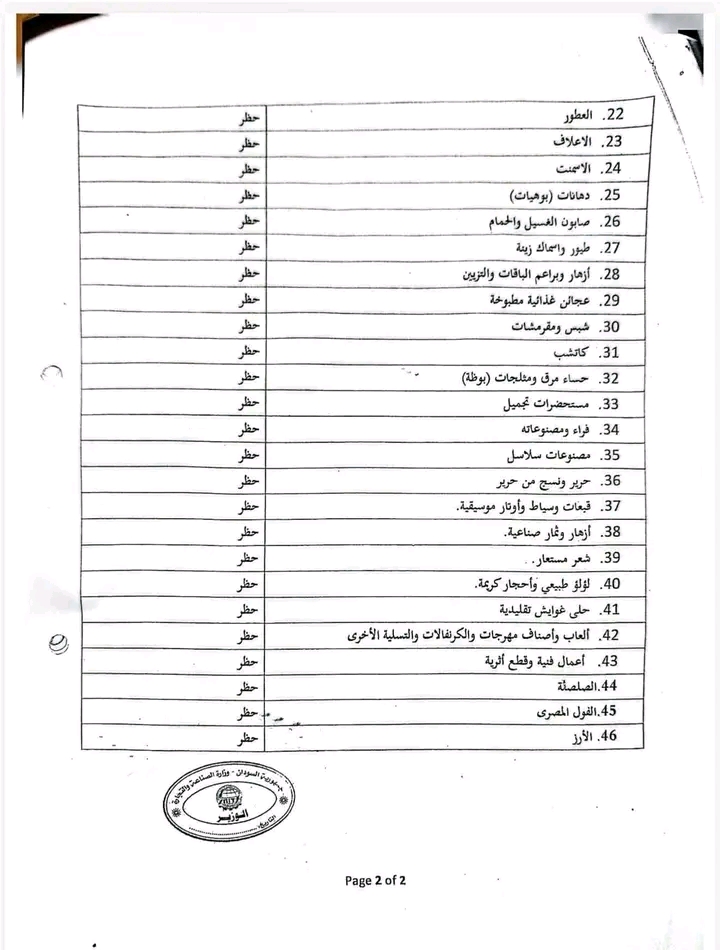 22. العطور حظر
23. الاعلاف حظر
24. الاسمنت حظر
25. دهانات (بوهيات) حظر
26. صابون الغسيل والحمام حظر
27. طيور واسماك زينة حظر
28. أزهار وبراعم الباقات والتزيين حظر
29. عجائن غذائية مطبوخة حظر
30. شبس ومقرمشات حظر
31. كاتشب حظر
32. حساء مرق ومثلجات (بوظة) حظر
33. مستحضرات تجميل حظر
34. فراء ومصنوعاته حظر
35. مصنوعات سلاسل حظر
36. حرير ونسج من حرير حظر
37. قبعات وسياط وأوتار موسيقية. حظر
38. أزهار وثمار صناعية. حظر
39. شعر مستعار. حظر
40. لؤلؤ طبيعي وأحجار كريمة. حظر
41. حلى غوايش تقليدية حظر
42. ألعاب وأصناف مهرجات والكرنفالات والتسلية الأخرى حظر
43. أعمال فنية وقطع أثرية حظر
44. الصلصة حظر
45. الفول المصرى حظر
46. الأرز حظر
جمهورية السودان - وزارة الصناعة والتجارة
الوزير
التاريخ
Page 2 of 2